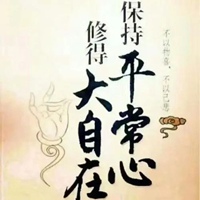 保持
平常心
修得
大自在
不以物喜，不以己悲